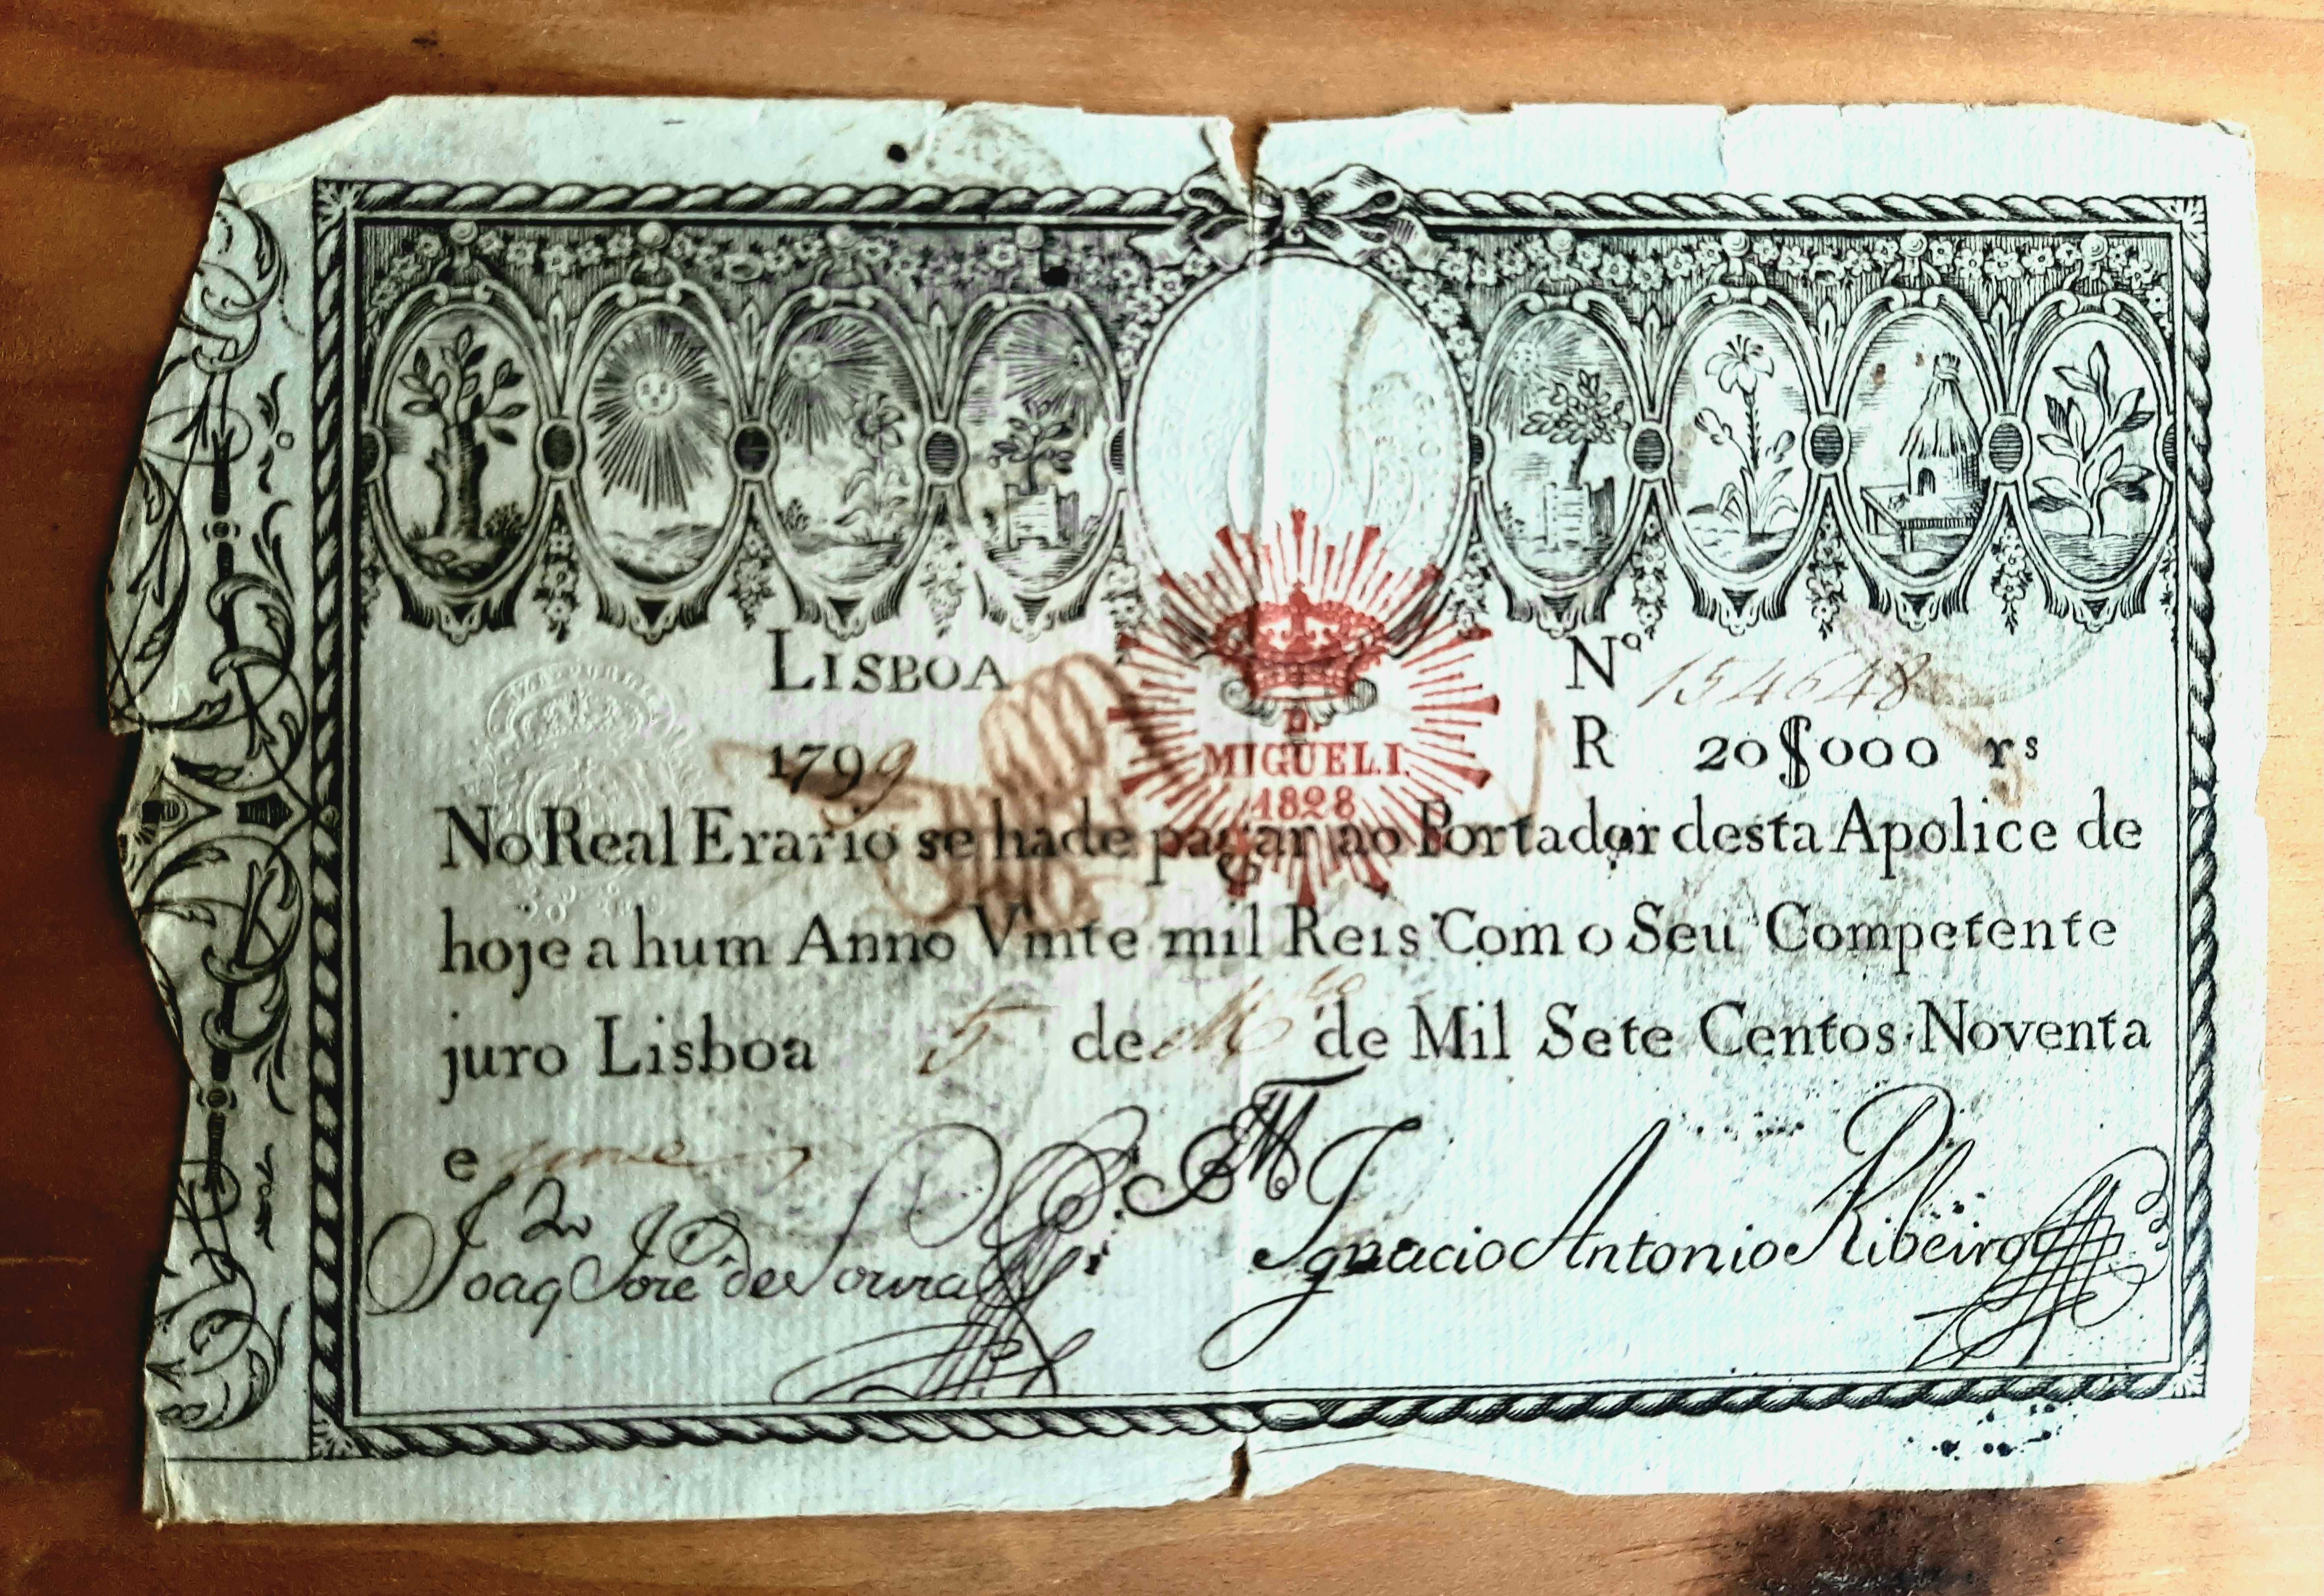 LISBOA
Nº 154648
1799
R 20$000 rs
D.
MIGUEL.I.
1828
No Real Erario se hade pagar ao Portador desta Apolice de
hoje a hum Anno Vinte mil Reis Com o Seu Competente
juro Lisboa 5 de de Mil Sete Centos Noventa
e nove
Joaq José de Souza
Ignacio Antonio Ribeiro